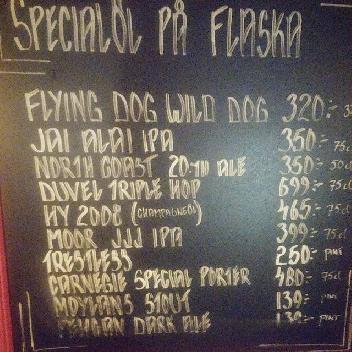 SPECIALÖL PÅ FLASKA
FLYING DOG WILD DOG 320:-
JAI ALAI IPA 350:- 75cl
NORTH COAST 20-TH ALE 350:- 50cl
DUVEL TRIPLE HOP 699:- 75cl
HY 2008 (CHAMPAGNEÖL) 465:- 75cl
MOOR JJJ IPA 399:- 75cl
TRESTLESS 250:- PINT
CARNEGIE SPECIAL PORTER 480:- 75cl
MOYLANS STOUT 139:- PINT
DARK ALE 139:- PINT